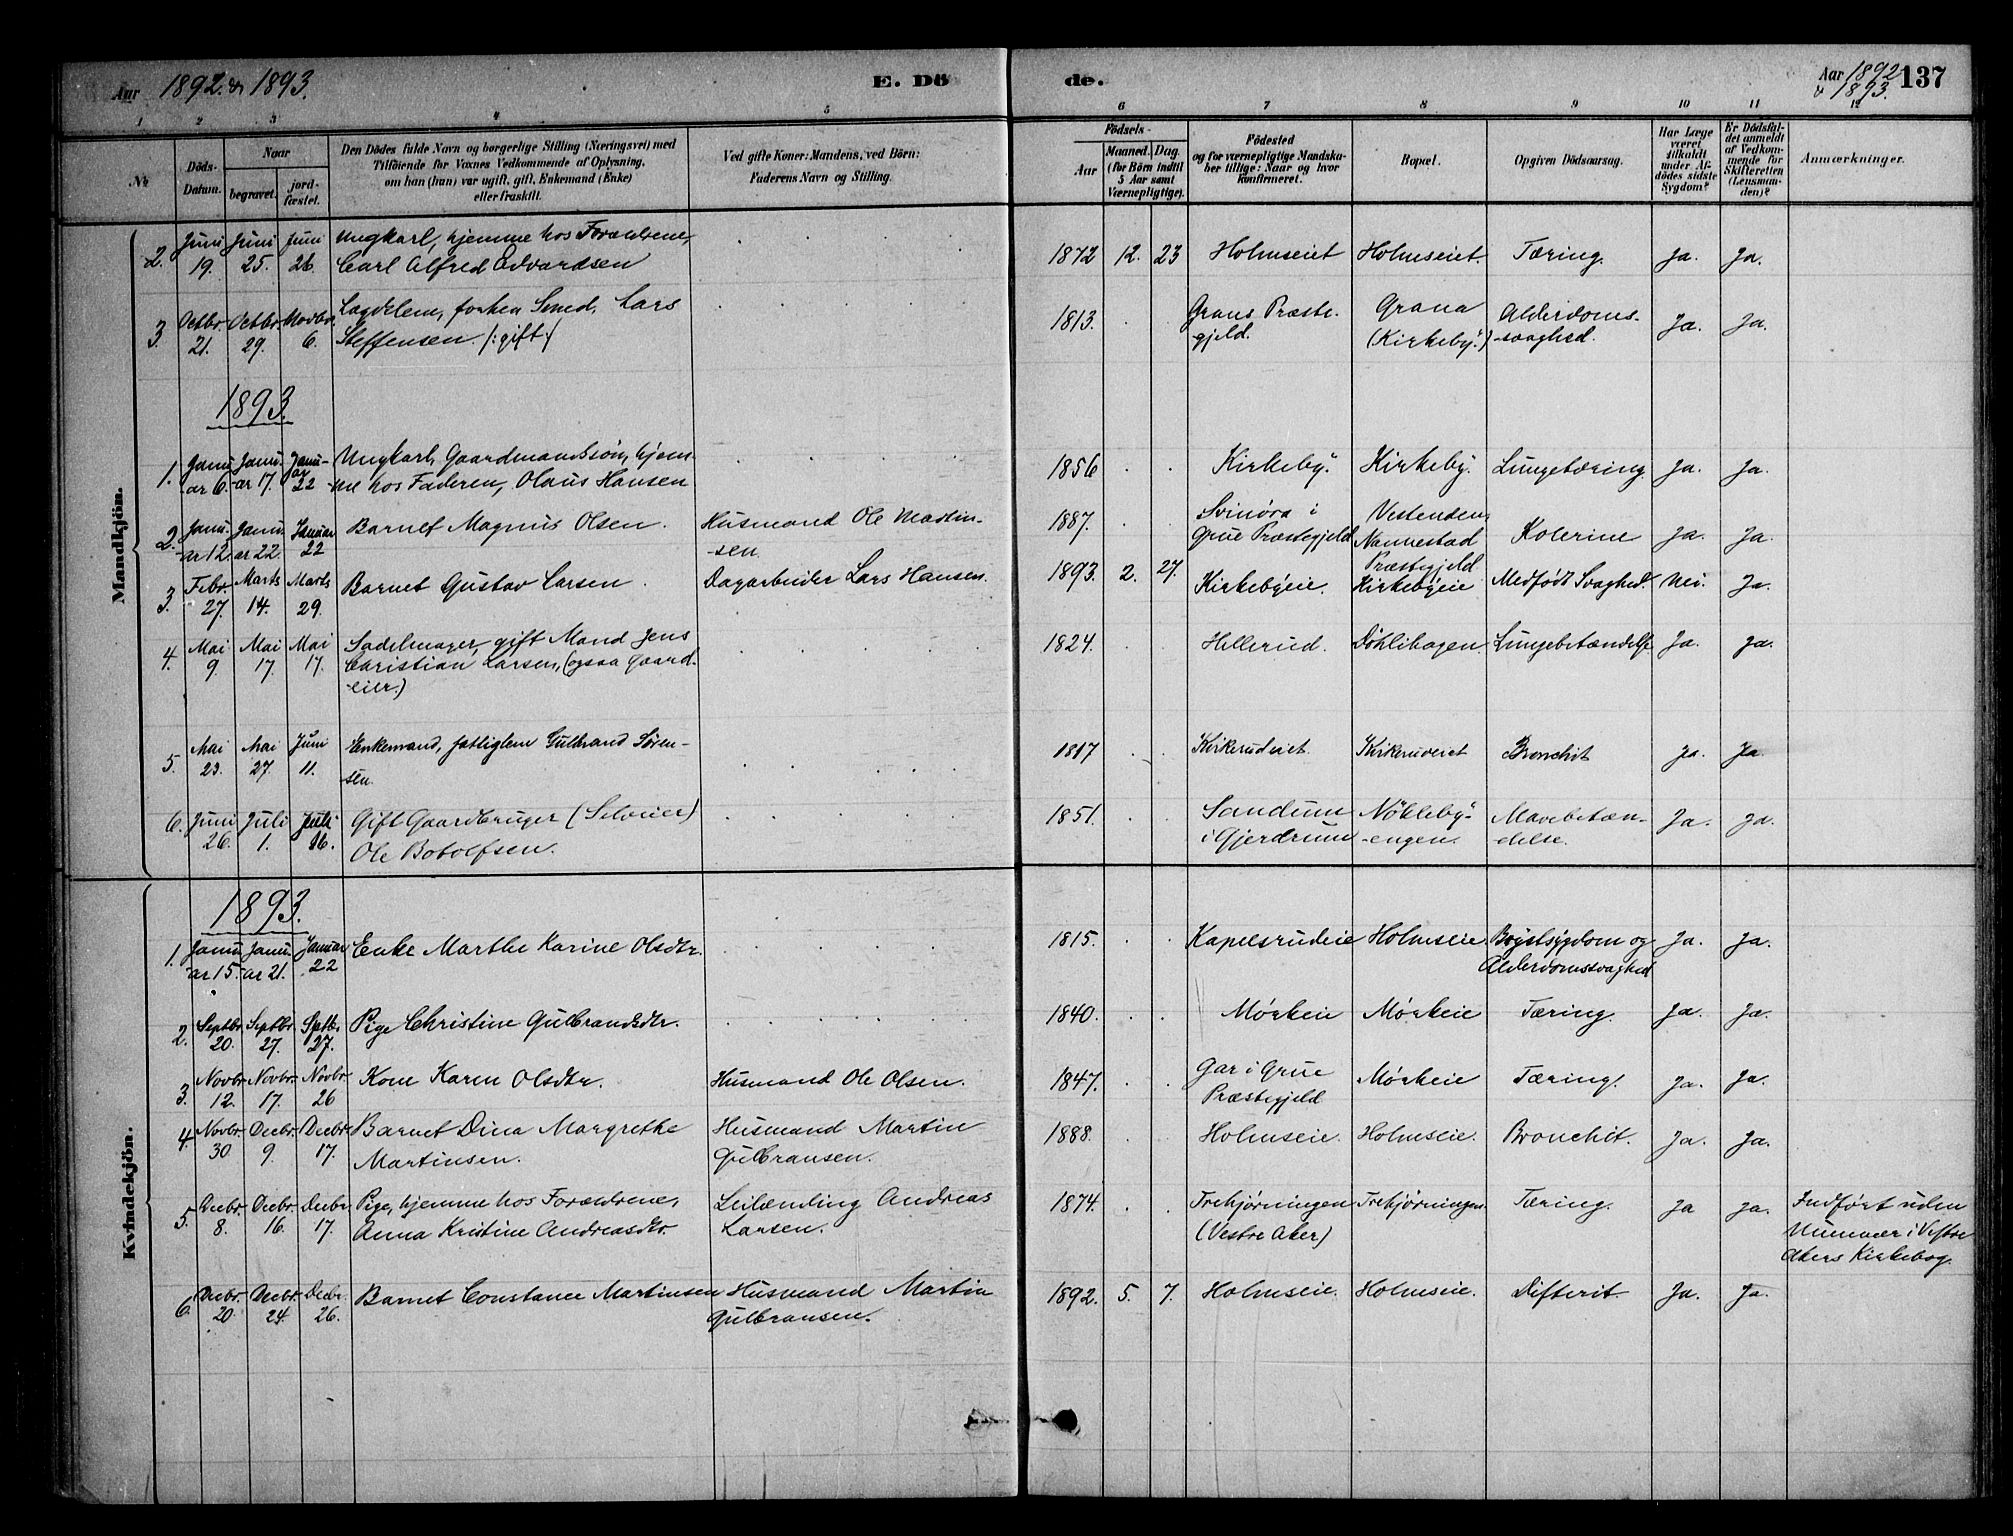 Aar 1892 & 1893.
E. Dö de.
Aar 1892 & 1893. 137
1 2 3 4 5 6 7 8 9 10 11 12
No.
Döds-Datum.
Naar
begravet.
jord-fæstet.
Den Dödes fulde Navn og borgerlige Stilling (Næringsvei) med
Tilföiende for Voxnes Vedkommende af Oplysning,
om han (hun) var ugift, gift, Enkemand (Enke)
eller fraskilt.
Ved gifte Koner: Mandens, ved Börn:
Faderens Navn og Stilling.
Födsels-
Aar
Maaned. Dag.
(for Börn indtil
5 Aar samt
Værnepligtige).
Födested
og for værnepligtige Mandska-
ber tillige: Naar og hvor
konfirmeret.
Bopæl.
Opgiven Dödsaarsag.
Har Læge
været
tilkaldt
under Af-
dödes sidste
Sygdom?
Er Dödsfal-
det anmeldt
af Vedkom-
mende for
Skifteretten
(Lensman-
den)?
Anmærkninger.
Mandkjön.
2. Juni 19. Juni 25. Juni 26. Ungkarl, hjemme hos Forældrene, 1872 12. 23 Holmseiet Holmseiet. Tæring. Ja. Ja.
Carl Alfred Edvardsen
3. Octbr. 21. Octbr. 29. Novbr. 6. Lægdslem, forhen Smed, Lars 1813. Grans Præste- Grana Alderdoms- Ja. Ja.
Steffensen. (: gift :) -gjeld. (Kirkeby.) -svaghed.
1893.
1. Janu-ar 6. Janu-ar 17. Janu-ar 22 Ungkarl, Gaardmandssøn, hjem- 1856 Kirkeby. Kirkeby. Lungetæring. Ja. Ja.
-me hos Faderen, Olaus Hansen
2. Janu-ar 12. Janu-ar 22. Januar 22 Barnet Magnus Olsen. Husmand Ole Martin- 1887. Svinøra i Vestenden, Kolerine Ja. Ja.
-sen. Grue Præstegjeld Nannestad
Præstegjeld
3. Febr. 27. Marts 14. Marts 29. Barnet Gustav Larsen. Dagarbeider Lars Hansen. 1893. 2. 27. Kirkebyeie. Kirkebyeie Medfødt Svaghed. Nei. Ja.
4. Mai 9. Mai 17. Mai 17. Sadelmager, gift Mand Jens 1824. Hellerud. Döhlihagen. Lungebetændelse Ja. Ja.
Christian Larsen, (ogsaa Gaard-
-eier.)
5. Mai 23. Mai 27. Juni 11. Enkemand, fattiglem Gulbrand Søren- 1817 Kirkerudeiet. Kirkerudeiet Bronchit Ja. Ja.
sen.
6. Juni 26. Juli 1. Juli 16. Gift Gaardbruger (Selveier) 1851. Sandum Nökleby- Mavebetæn- Ja. Ja.
Ole Botolfsen. i Gjerdrum -engen. -delse.
Kvindekjön.
1893.
1. Janu-ar 15. Janu-ar 21. Januar 22 Enke Marthe Karine Olsdtr. 1815. Kapelsrudeie Holmseie Brystsygdom og Ja. Ja.
Alderdomssvaghed
2. Septbr. 20. Septbr. 27. Septbr. 27. Pige Christine Gulbrandsdtr. 1840. Mørkeie Mørkeie Tæring. Ja. Ja.
3. Novbr. 12. Novbr. 17. Novbr. 26 Kone Karen Olsdtr. Husmand Ole Olsen. 1847. Gar i Grue Mørkeie Tæring. Ja. Ja.
Præstegjeld
4. Novbr. 30 Decbr. 9. Decbr. 17. Barnet Dina Margrethe Husmand Martin 1888. Holmseie. Holmseie. Bronchit. Ja. Ja.
Martinsen. Gulbransen.
5. Decbr. 8. Decbr. 16. Decbr. 17. Pige, hjemme hos Forældrene, Leilænding Andreas 1874. Trehjørningen Trehjørningen. Tæring. Ja Ja. Indført uden
Anna Kristine Andreasdtr. Larsen. (Vestre Aker) Nummer i Vestre
Akers Kirkebog.
6. Decbr. 20. Decbr. 24. Decbr. 26. Barnet Constance Martinsen Husmand Martin 1892. 5. 7. Holmseie. Holmseie. Difterit. Ja. Ja.
Gulbransen.